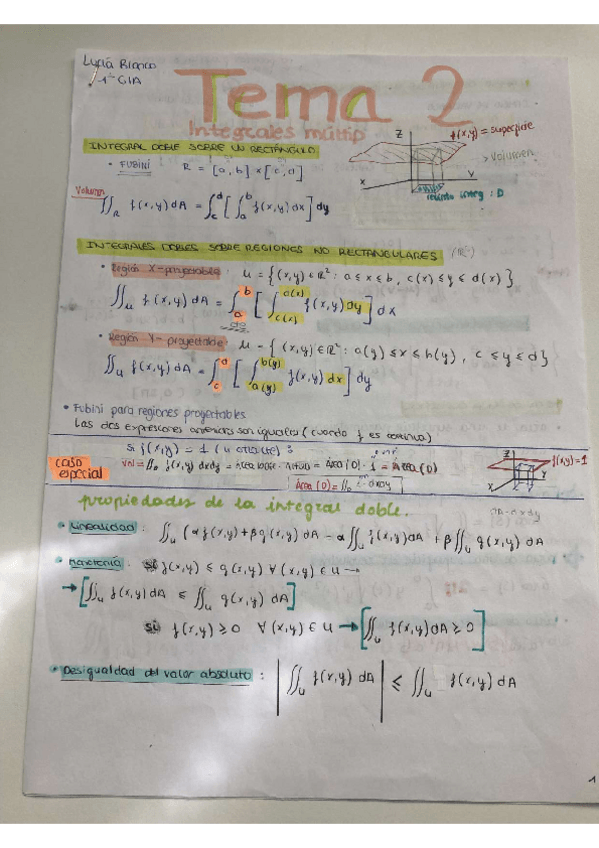 Lucía Blanco
1º GIA
Tema 2
Integrales múltip
INTEGRAL DOBLE SOBRE UN RECTÁNGULO
• FUBINI R = [a, b] × [c, d]
Z f(x,y) = superficie
> Volumen
X Y
recinto integ: D
Volumen
∬_R f(x,y) dA = ∫_c^d [ ∫_a^b f(x,y) dx ] dy
INTEGRALES DOBLES SOBRE REGIONES NO RECTANGULARES (R²)
• Región X-proyectable: u = {(x,y) ∈ R² : a ≤ x ≤ b, c(x) ≤ y ≤ d(x)}
∬_u f(x,y) dA = ∫_a^b [ ∫_{c(x)}^{d(x)} f(x,y) dy ] dx
• Región Y-proyectable: u = {(x,y) ∈ R² : a(y) ≤ x ≤ b(y), c ≤ y ≤ d}
∬_u f(x,y) dA = ∫_c^d [ ∫_{a(y)}^{b(y)} f(x,y) dx ] dy
• Fubini para regiones proyectables
Las dos expresiones anteriores son iguales (cuando f es continua)
caso especial
Si f(x,y) = 1 (u arriba) :
Vol = ∬_D f(x,y) dxdy = Área base · Altura = Área(D) · 1 = Área(D)
Área(D) = ∬_D dxdy
Z f(x,y)=1
X Y
propiedades de la integral doble.
dA = dxdy
• Linealidad : ∬_u (αf(x,y)+βg(x,y) dA = α∬_u f(x,y)dA + β∬_u g(x,y) dA
Si f(x,y) ≤ g(x,y) ∀(x,y) ∈ u →
→ [∬_u f(x,y)dA ≤ ∬_u g(x,y) dA]
Si f(x,y) ≥ 0 ∀(x,y) ∈ u → [∬_u f(x,y)dA ≥ 0]
• Desigualdad del valor absoluto : |∬_u f(x,y) dA| ≤ ∬_u f(x,y) dA
1